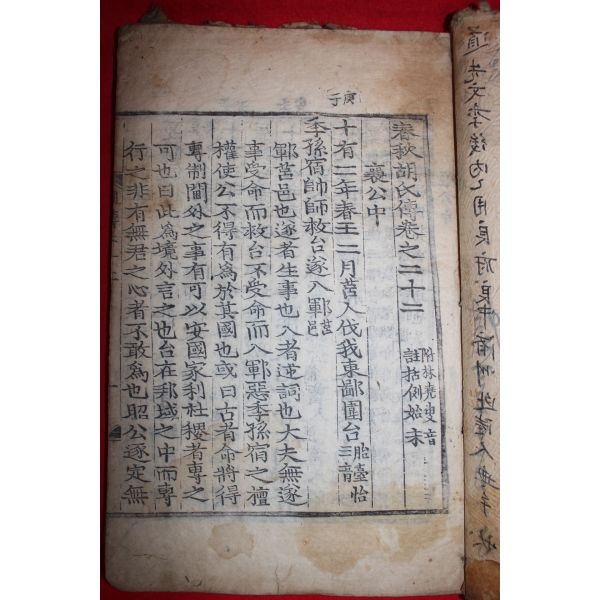 春秋胡氏傳卷之二十二
附林堯叟音
註括例始末
襄公中
庚子
十有二年春王二月莒人伐我東鄙圍台
三音
胎臺怡
季孫宿帥師救台遂入鄆
莒邑
鄆莒邑也遂者生事也入者逆詞也大夫無遂
事受命而救台不受命而入鄆惡季孫宿之擅
權使公不得有為於其國也或曰古者命將得
專制閫外之事有可以安國家利社稷者專之
可也曰此為境外言之也台在邦域之中而專
行之非有無君之心者不敢為也昭公逐定無
道先文季後
用良府良